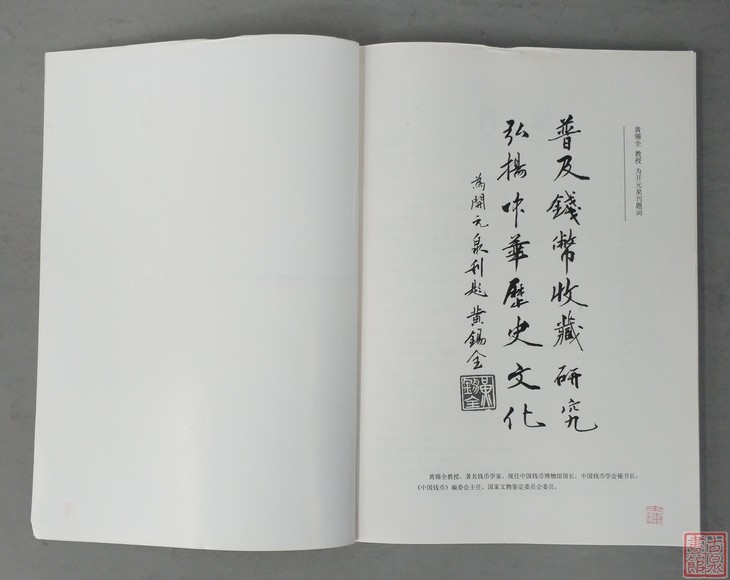 黄锡全 教授 为开元泉刊题词
普及錢幣收藏研究
弘揚中華歷史文化
為開元泉刊題 黄錫全
黄錫全
黄锡全教授,著名钱币学家,现任中国钱币博物馆馆长,中国钱币学会秘书长,
《中国钱币》编委会主任,国家文物鉴定委员会委员。